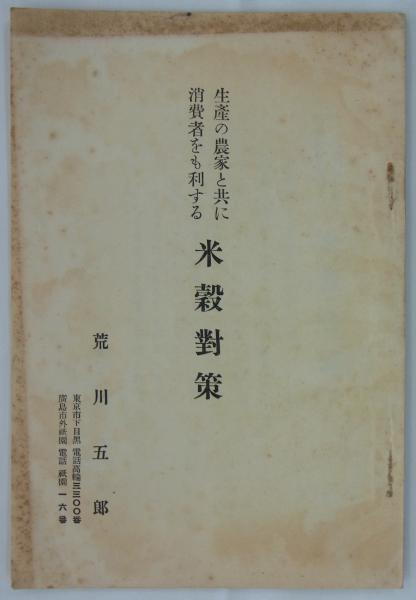 生產の農家と共に
消費者をも利する
米穀對策
荒川五郎
東京市下目黑 電話高輪三三〇〇番
廣島市外祇園 電話 祇園 一六番